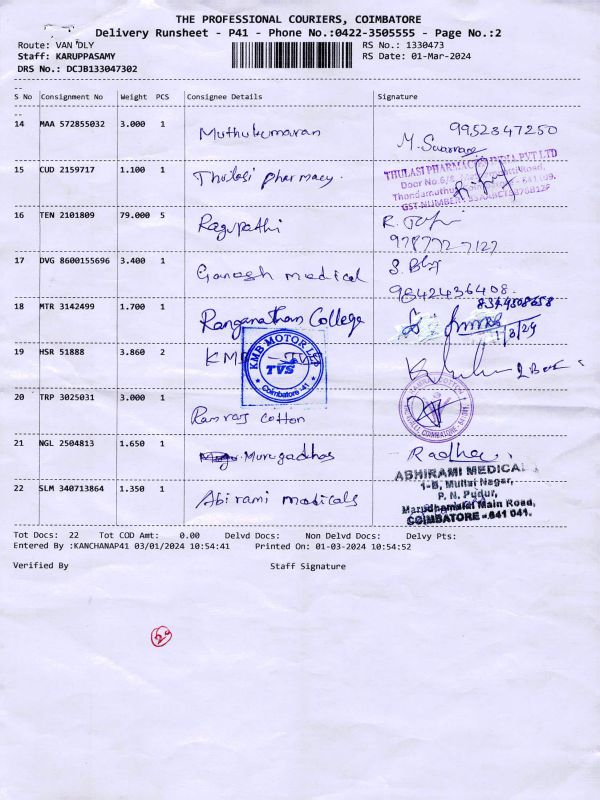 THE PROFESSIONAL COURIERS, COIMBATORE
Delivery Runsheet - P41 - Phone No.:0422-3505555 - Page No.:2
Route: VAN DLY
RS No.: 1330473
Staff: KARUPPASAMY
RS Date: 01-Mar-2024
DRS No.: DCJB133047302
S No Consignment No Weight PCS Consignee Details Signature
14 MAA 572855032 3.000 1 Muthukumaran
9952347250
15 CUD 2159717 1.100 1 Thulasi pharmacy.
THULASI PHARMACIES INDIA PVT LTD
Door No.6/
GST NUMBER:
16 TEN 2101809 79.000 5 Ragupathi
17 DVG 8600155696 3.400 1 Ganesh medical
9842436408
18 MTR 3142499 1.700 1 Ranganathan College
1/3/24
19 HSR 51888 3.860 2 KMB TVS
KMB MOTOR LLP
TVS
Coimbatore -41
20 TRP 3025031 3.000 1 Ramraj cotton
21 NGL 2504813 1.650 1 Murugadhas
Radha
22 SLM 340713864 1.350 1 Abirami medicals
ABHIRAMI MEDICAL
1-B, Mullai Nagar,
P. N. Pudur,
Marudhamalai Main Road,
COIMBATORE - 641 041.
Tot Docs: 22 Tot COD Amt: 0.00 Delvd Docs: Non Delvd Docs: Delvy Pts:
Entered By :KANCHANAP41 03/01/2024 10:54:41 Printed On: 01-03-2024 10:54:52
Verified By Staff Signature